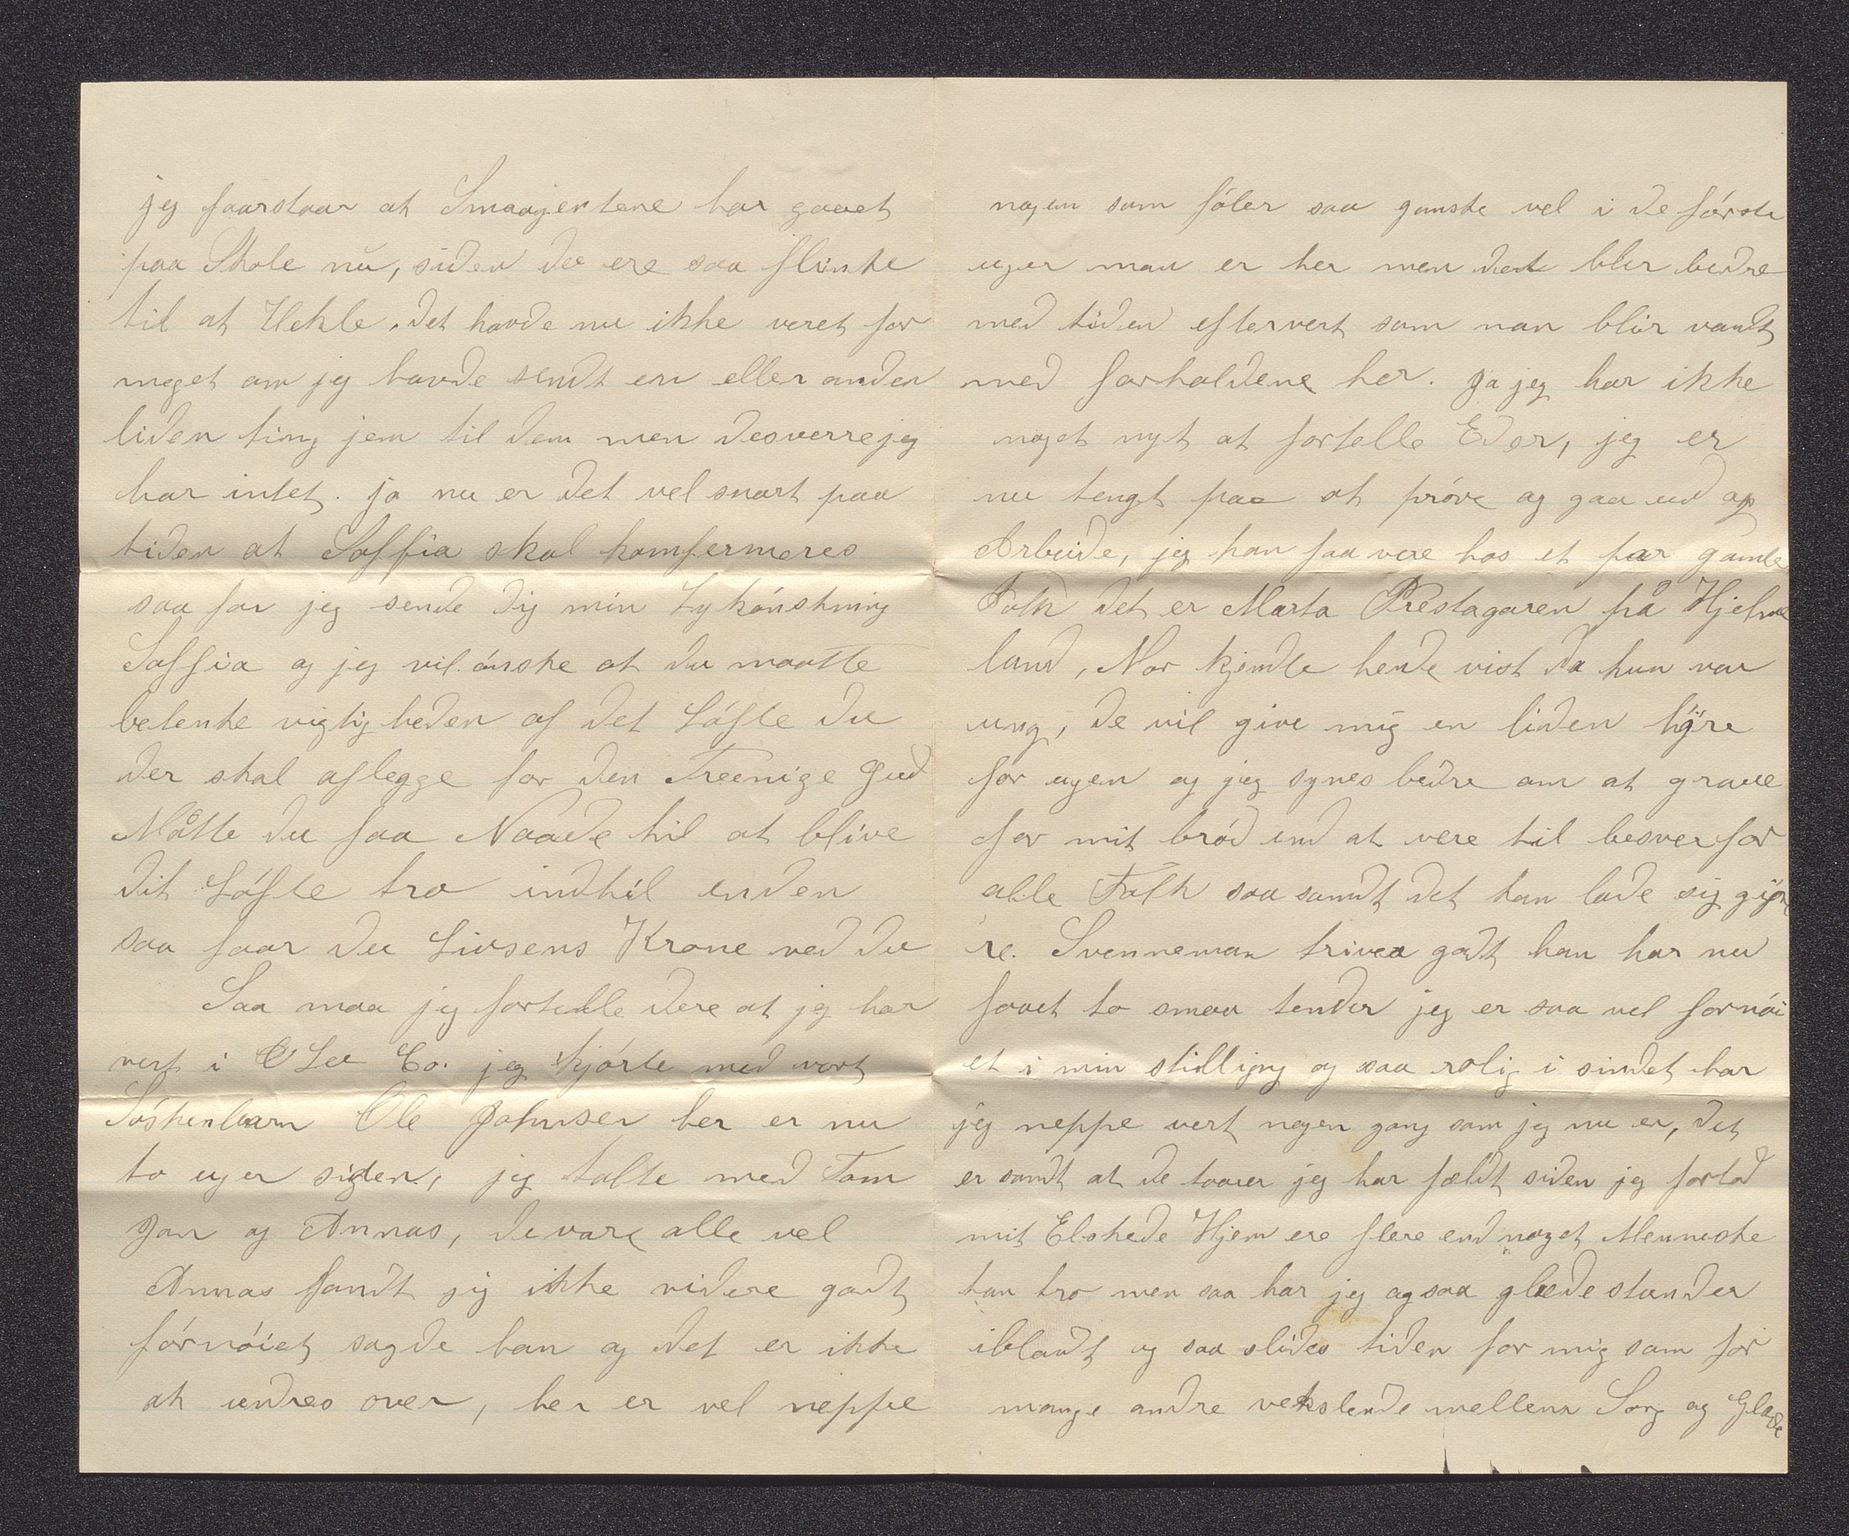 jeg faarstaar at Smaajentene har gaaet
paa Skole nu, siden de ere saa flinke
til at Hekle, det havde nu ikke veret for
meget om jeg havde sendt en eller anden
liden ting jem til dem men desverre jeg
har intet. ja nu er det vel snart paa
tiden at Soffia skal komfermeres
saa faar jeg sende dig min Lykønskning
Soffia og jeg vil ønske at du maatte
betenke vigtigheden af det Løfte du
der skal aflegge for den Treenige Gud
Måtte du faa Naade til at blive
dit Løfte tro indtil enden
saa faar du Livsens Krone ved du
Saa maa jeg fortelle dere at jeg har
vert i Lee Co. jeg kjørte med vort
Søskenbarn Ole Johnsen her er nu
to uger siden, jeg talte med Tom
Jan og Annas, de vare alle vel
Annas fandt jeg ikke videre godt
fornøiet sagde han og det er ikke
at undres over, her er vel neppe
nogen som føler saa ganske vel i de første
uger man er her men det blir bedre
med tiden eftervert som man blir vandt
med forholdene her. Ja jeg har ikke
noget nyt at fortelle Eder, jeg er
nu tengt paa at prøve og gaa ud op
Arbeide, jeg kan faa vere hos et par gamle
Folk det er Marta Prestagaren på Hjelme
land, Mor kjendte hende vist da hun var
ung, de vil give mig en liden hyre
for ugen og jeg synes bedre om at grave
for mit brød end at vere til besver for
alle Folk saa sandt det kan lade sig gjø
re. Svenneman trives godt han har nu
faaet to smaa tender jeg er saa vel fornøi
et i min stilling og saa rolig i sindet har
jeg neppe vert nogen gang som jeg nu er, det
er sandt at de taarer jeg har fældt siden jeg forlod
mit Elskede Hjem ere flere end noget Menneske
kan tro men saa har jeg ogsaa glæde stunder
iblandt og saa slides tiden for mig som for
mange andre vekslende mellem Sorg og Glæde